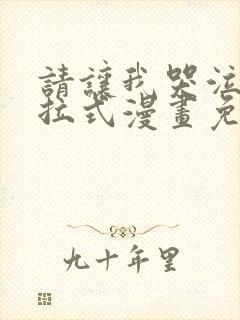 請讓我哭泣
拉式漫畫免
九十年里